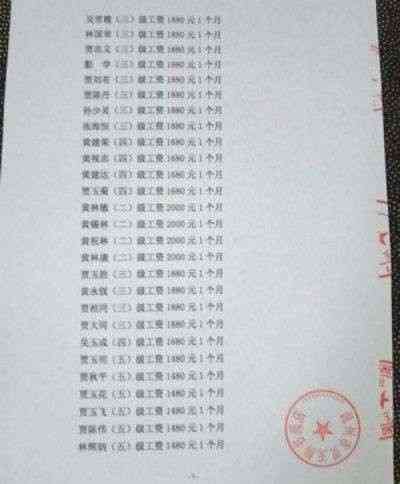 吴雪霞（三）级工费1880元1个月
林国章（三）级工费1880元1个月
贾志文（三）级工费1880元1个月
（三）级工费1880元1个月
贾刘在（三）级工费1880元1个月
贾陈丹（三）级工费1880元1个月
孙少吴（三）级工费1880元1个月
张海恒（三）级工费1880元1个月
黄建荣（四）级工费1680元1个月
黄视志（四）级工费1680元1个月
黄建达（四）级工费1680元1个月
贾玉菊（四）级工费1680元1个月
黄林敏（二）级工费2000元1个月
黄锡林（二）级工费2000元1个月
黄祝林（二）级工费2000元1个月
黄林康（二）级工费2000元1个月
贾玉胜（三）级工费1880元1个月
黄永钗（三）级工费1880元1个月
贾柏同（三）级工费1880元1个月
贾大同（三）级工费1880元1个月
吴玉成（四）级工费1680元1个月
贾玉明（五）级工费1480元1个月
贾秋平（五）级工费1480元1个月
贾玉花（五）级工费1480元1个月
贾玉飞（五）级工费1480元1个月
贾陈伟（五）级工费1480元1个月
林照钠（五）级工费1480元1个月